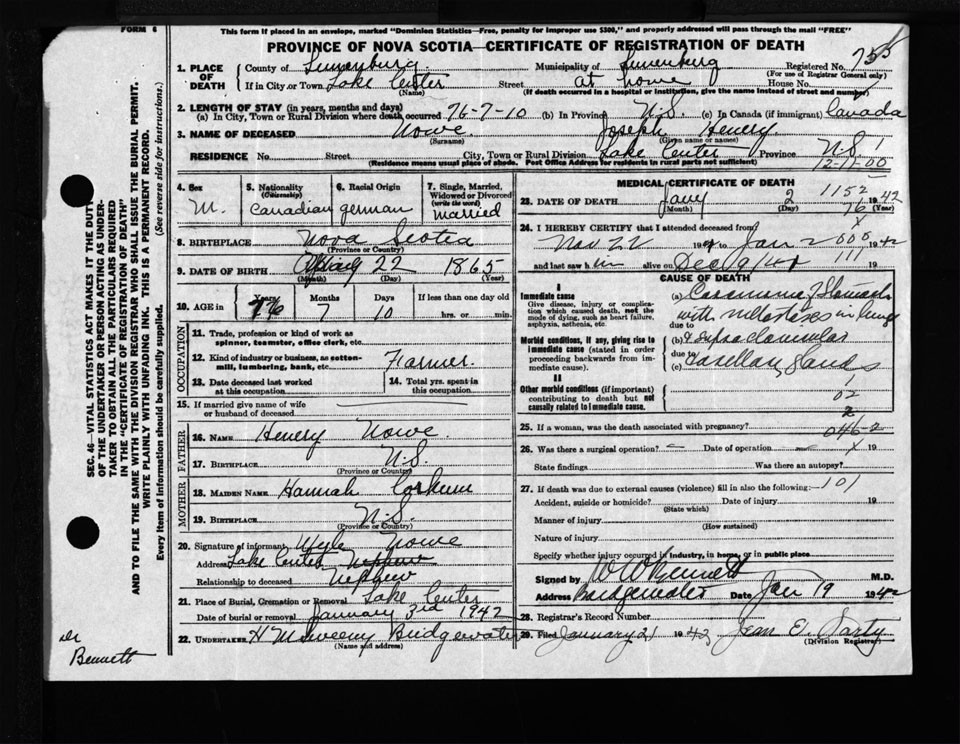 FORM 6
This form if placed in an envelope, marked "Dominion Statistics—Free, penalty for improper use $300," and properly addressed will pass through the mail "FREE"
PROVINCE OF NOVA SCOTIA—CERTIFICATE OF REGISTRATION OF DEATH
1. PLACE OF DEATH
County of Lunenburg Municipality of Lunenburg Registered No. 755
(For use of Registrar General only)
If in City or Town Lake Center Street at home House No.
(Name) (If death occurred in a hospital or institution, give the name instead of street and number)
2. LENGTH OF STAY (in years, months and days)
(a) In City, Town or Rural Division where death occurred 76-7-10 (b) In Province N.S. (c) In Canada (if immigrant) Canada
3. NAME OF DECEASED Nowe Joseph Henery
(Surname) (Given name or names)
RESIDENCE No. Street City, Town or Rural Division Lake Center Province N.S 1
(Residence means usual place of abode. Post Office Address for residents in rural parts not sufficient) 12-11-00
4. Sex M.
5. Nationality (Citizenship) Canadian
6. Racial Origin german
7. Single, Married, Widowed or Divorced (write the word) married
8. BIRTHPLACE Nova Scotia
(Province or Country)
9. DATE OF BIRTH 22 1865
(Month) (Day) (Year)
10. AGE in Years Months Days If less than one day old
76 7 10 hrs. or min.
OCCUPATION
11. Trade, profession or kind of work as spinner, teamster, office clerk, etc.
12. Kind of industry or business, as cotton-mill, lumbering, bank, etc. Farmer.
13. Date deceased last worked at this occupation
14. Total yrs. spent in this occupation
15. If married give name of wife or husband of deceased
FATHER
16. NAME Henery Nowe
17. BIRTHPLACE N.S.
(Province or Country)
MOTHER
18. MAIDEN NAME Hannah Corkum
19. BIRTHPLACE N.S.
(Province or Country)
20. Signature of informant Nowe
Address Lake Center Nephew
Relationship to deceased Nephew
21. Place of Burial, Cremation or Removal Lake Center
Date of burial or removal January 3rd 1942
22. UNDERTAKER Bridgewater
(Name and address)
MEDICAL CERTIFICATE OF DEATH
1152
23. DATE OF DEATH Jany 2 1942
(Month) (Day) (Year)
76
24. I HEREBY CERTIFY that I attended deceased from
x
Nov. 22 194 to Jan 2 1942
000
and last saw h im alive on Dec 19 19
111
CAUSE OF DEATH
I
Immediate cause
Give disease, injury or complication which caused death, not the mode of dying, such as heart failure, asphyxia, asthenia, etc.
Morbid conditions, if any, giving rise to immediate cause (stated in order proceeding backwards from immediate cause).
II
Other morbid conditions (if important) contributing to death but not causally related to immediate cause.
(a) Carcinoma of Stomach
with in lungs
due to
(b) & Supraclavicular
due to
(c) glands
1
02
2
25. If a woman, was the death associated with pregnancy? 046-2
26. Was there a surgical operation? Date of operation x 19
State findings Was there an autopsy?
27. If death was due to external causes (violence) fill in also the following: 101
Accident, suicide or homicide? Date of injury 19
(State which)
Manner of injury
(How sustained)
Nature of injury
Specify whether injury occurred in industry, in home, or in public place
Signed by Bennett M.D.
Address Bridgewater Date Jan 19 1942
28. Registrar's Record Number
29. Filed January 21 1942 Jean
(Division Registrar)
SEC. 46—VITAL STATISTICS ACT MAKES IT THE DUTY
OF THE UNDERTAKER OR PERSON ACTING AS UNDER-
TAKER TO OBTAIN ALL THE PARTICULARS REQUIRED
IN THE "CERTIFICATE OF REGISTRATION OF DEATH"
AND TO FILE THE SAME WITH THE DIVISION REGISTRAR WHO SHALL ISSUE THE BURIAL PERMIT.
WRITE PLAINLY WITH UNFADING INK. THIS IS A PERMANENT RECORD.
Every item of information should be carefully supplied. (See reverse side for instructions.)
Bennett